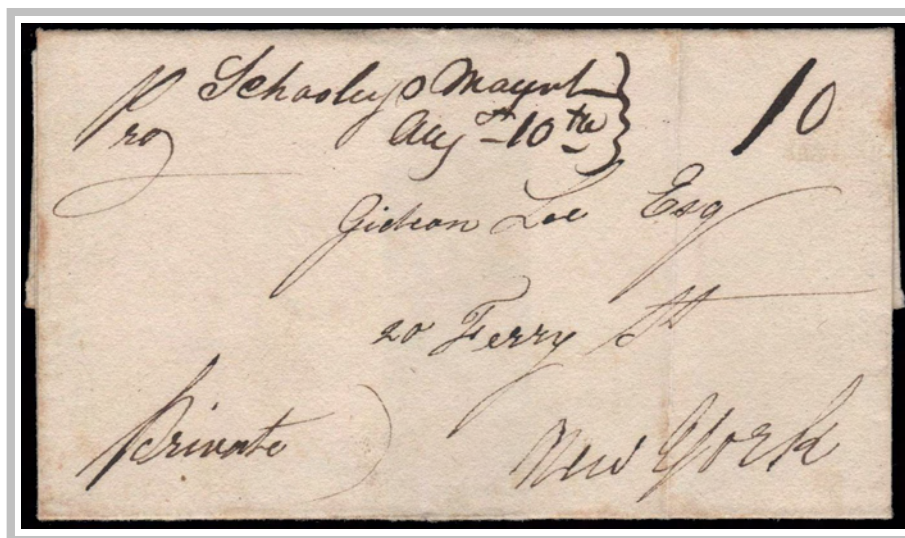 Schooleys Mount
Augst 10th
10
Pro
Gideon Lee Esq
20 Ferry St
Private
New York